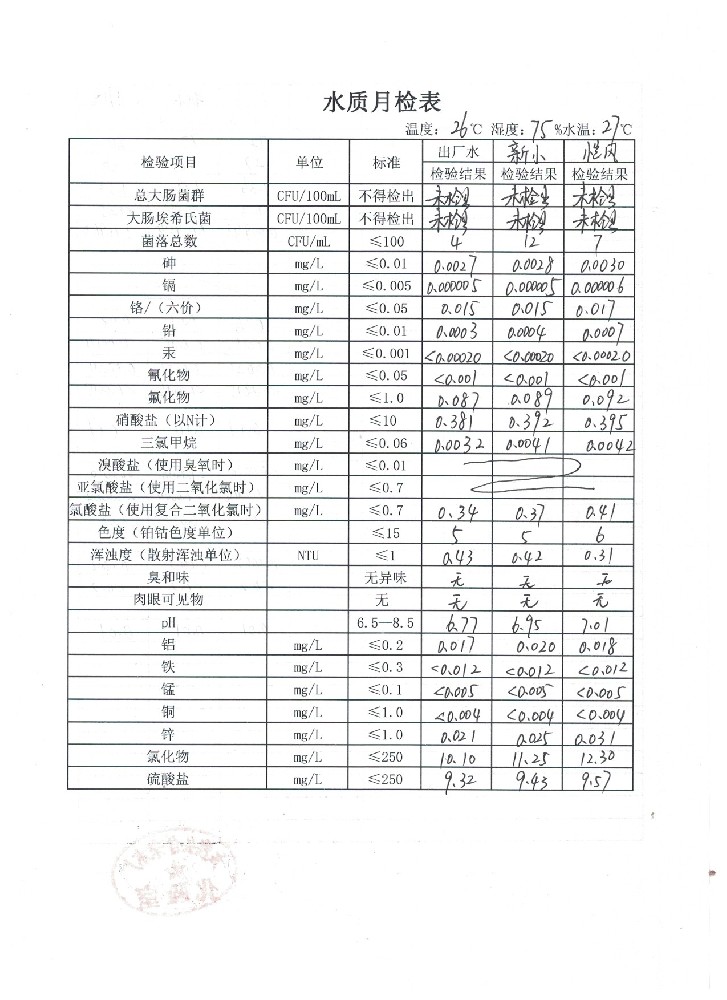 水质月检表
温度：26℃ 湿度：75%水温：27℃
检验项目 单位 标准 出厂水 新小 恺风
检验结果 检验结果 检验结果
总大肠菌群 CFU/100mL 不得检出 未检出 未检出 未检出
大肠埃希氏菌 CFU/100mL 不得检出 未检出 未检出 未检出
菌落总数 CFU/mL ≤100 4 12 7
砷 mg/L ≤0.01 0.0027 0.0028 0.0030
镉 mg/L ≤0.005 0.000005 0.000005 0.000006
铬/（六价） mg/L ≤0.05 0.015 0.015 0.017
铅 mg/L ≤0.01 0.0003 0.0004 0.0007
汞 mg/L ≤0.001 <0.00020 <0.00020 <0.00020
氰化物 mg/L ≤0.05 <0.001 <0.001 <0.001
氟化物 mg/L ≤1.0 0.087 0.089 0.092
硝酸盐（以N计） mg/L ≤10 0.381 0.392 0.395
三氯甲烷 mg/L ≤0.06 0.0032 0.0041 0.0042
溴酸盐（使用臭氧时） mg/L ≤0.01
亚氯酸盐（使用二氧化氯时） mg/L ≤0.7
氯酸盐（使用复合二氧化氯时） mg/L ≤0.7 0.34 0.37 0.41
色度（铂钴色度单位） ≤15 5 5 6
浑浊度（散射浑浊单位） NTU ≤1 0.43 0.42 0.31
臭和味 无异味 无 无 无
肉眼可见物 无 无 无 无
pH 6.5—8.5 6.77 6.95 7.01
铝 mg/L ≤0.2 0.017 0.020 0.018
铁 mg/L ≤0.3 <0.012 <0.012 <0.012
锰 mg/L ≤0.1 <0.005 <0.005 <0.005
铜 mg/L ≤1.0 <0.004 <0.004 <0.004
锌 mg/L ≤1.0 0.021 0.025 0.031
氯化物 mg/L ≤250 10.10 11.25 12.30
硫酸盐 mg/L ≤250 9.32 9.43 9.57